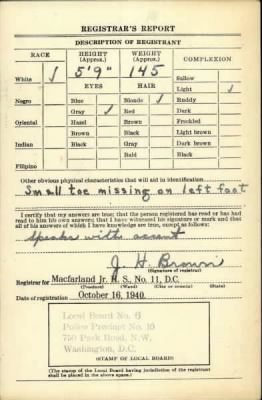 REGISTRAR'S REPORT
DESCRIPTION OF REGISTRANT
RACE HEIGHT (Approx.) WEIGHT (Approx.) COMPLEXION
5'9" 145 Sallow
White ✓ EYES HAIR Light ✓
Negro Blue Blonde ✓ Ruddy
Gray ✓ Red Dark
Oriental Hazel Brown Freckled
Brown Black Light brown
Indian Black Gray Dark brown
Bald Black
Filipino
Other obvious physical characteristics that will aid in identification
Small toe missing on left foot
I certify that my answers are true; that the person registered has read or has had
read to him his own answers; that I have witnessed his signature or mark and that
all of his answers of which I have knowledge are true, except as follows:
Speaks with accent
J. H. Brown
(Signature of registrar)
Registrar for Macfarland Jr. H. S. No. 11, D.C.
(Precinct) (Ward) (City or county) (State)
Date of registration October 16, 1940.
Local Board No. 6
Police Precinct No. 10
750 Park Road, N.W.
Washington, D.C.
(STAMP OF LOCAL BOARD)
(The stamp of the Local Board having jurisdiction of the registrant
shall be placed in the above space.)